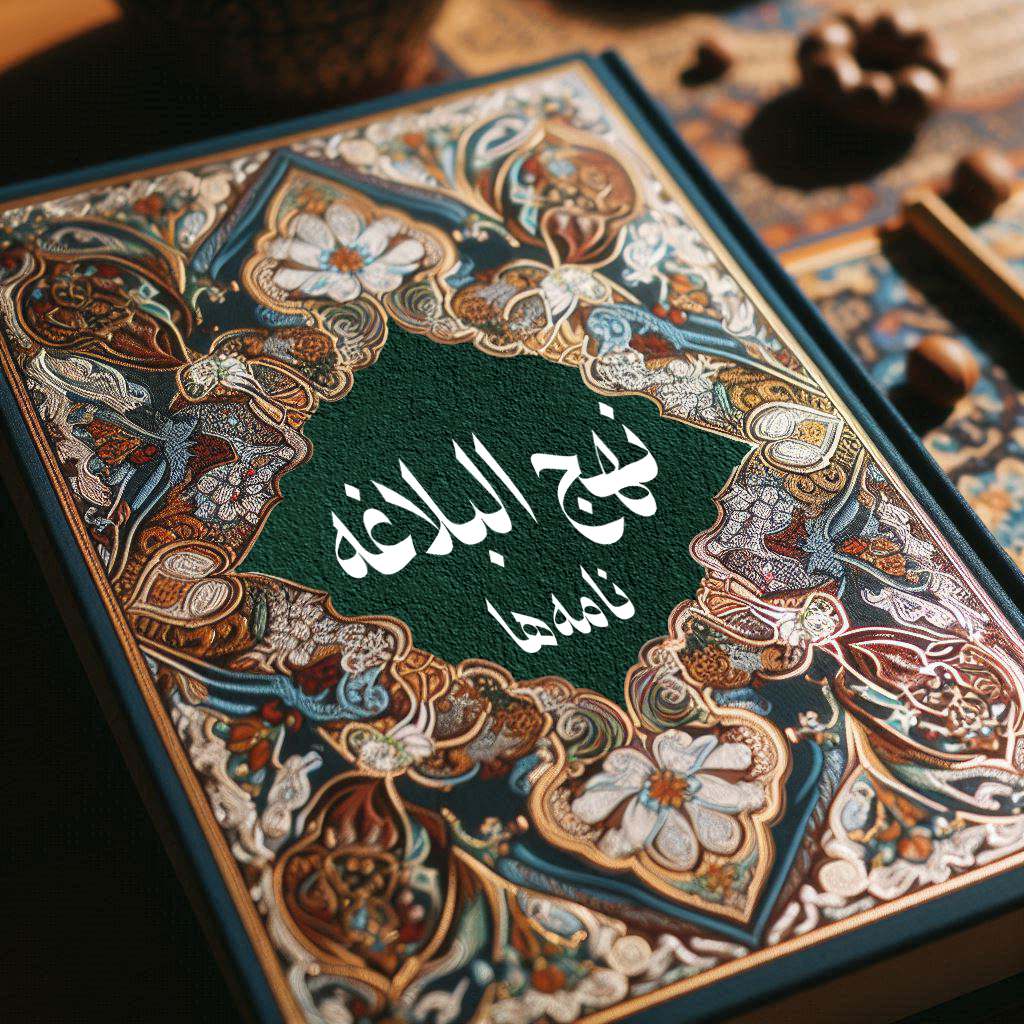 نهج البلاغه
نامه‌ها